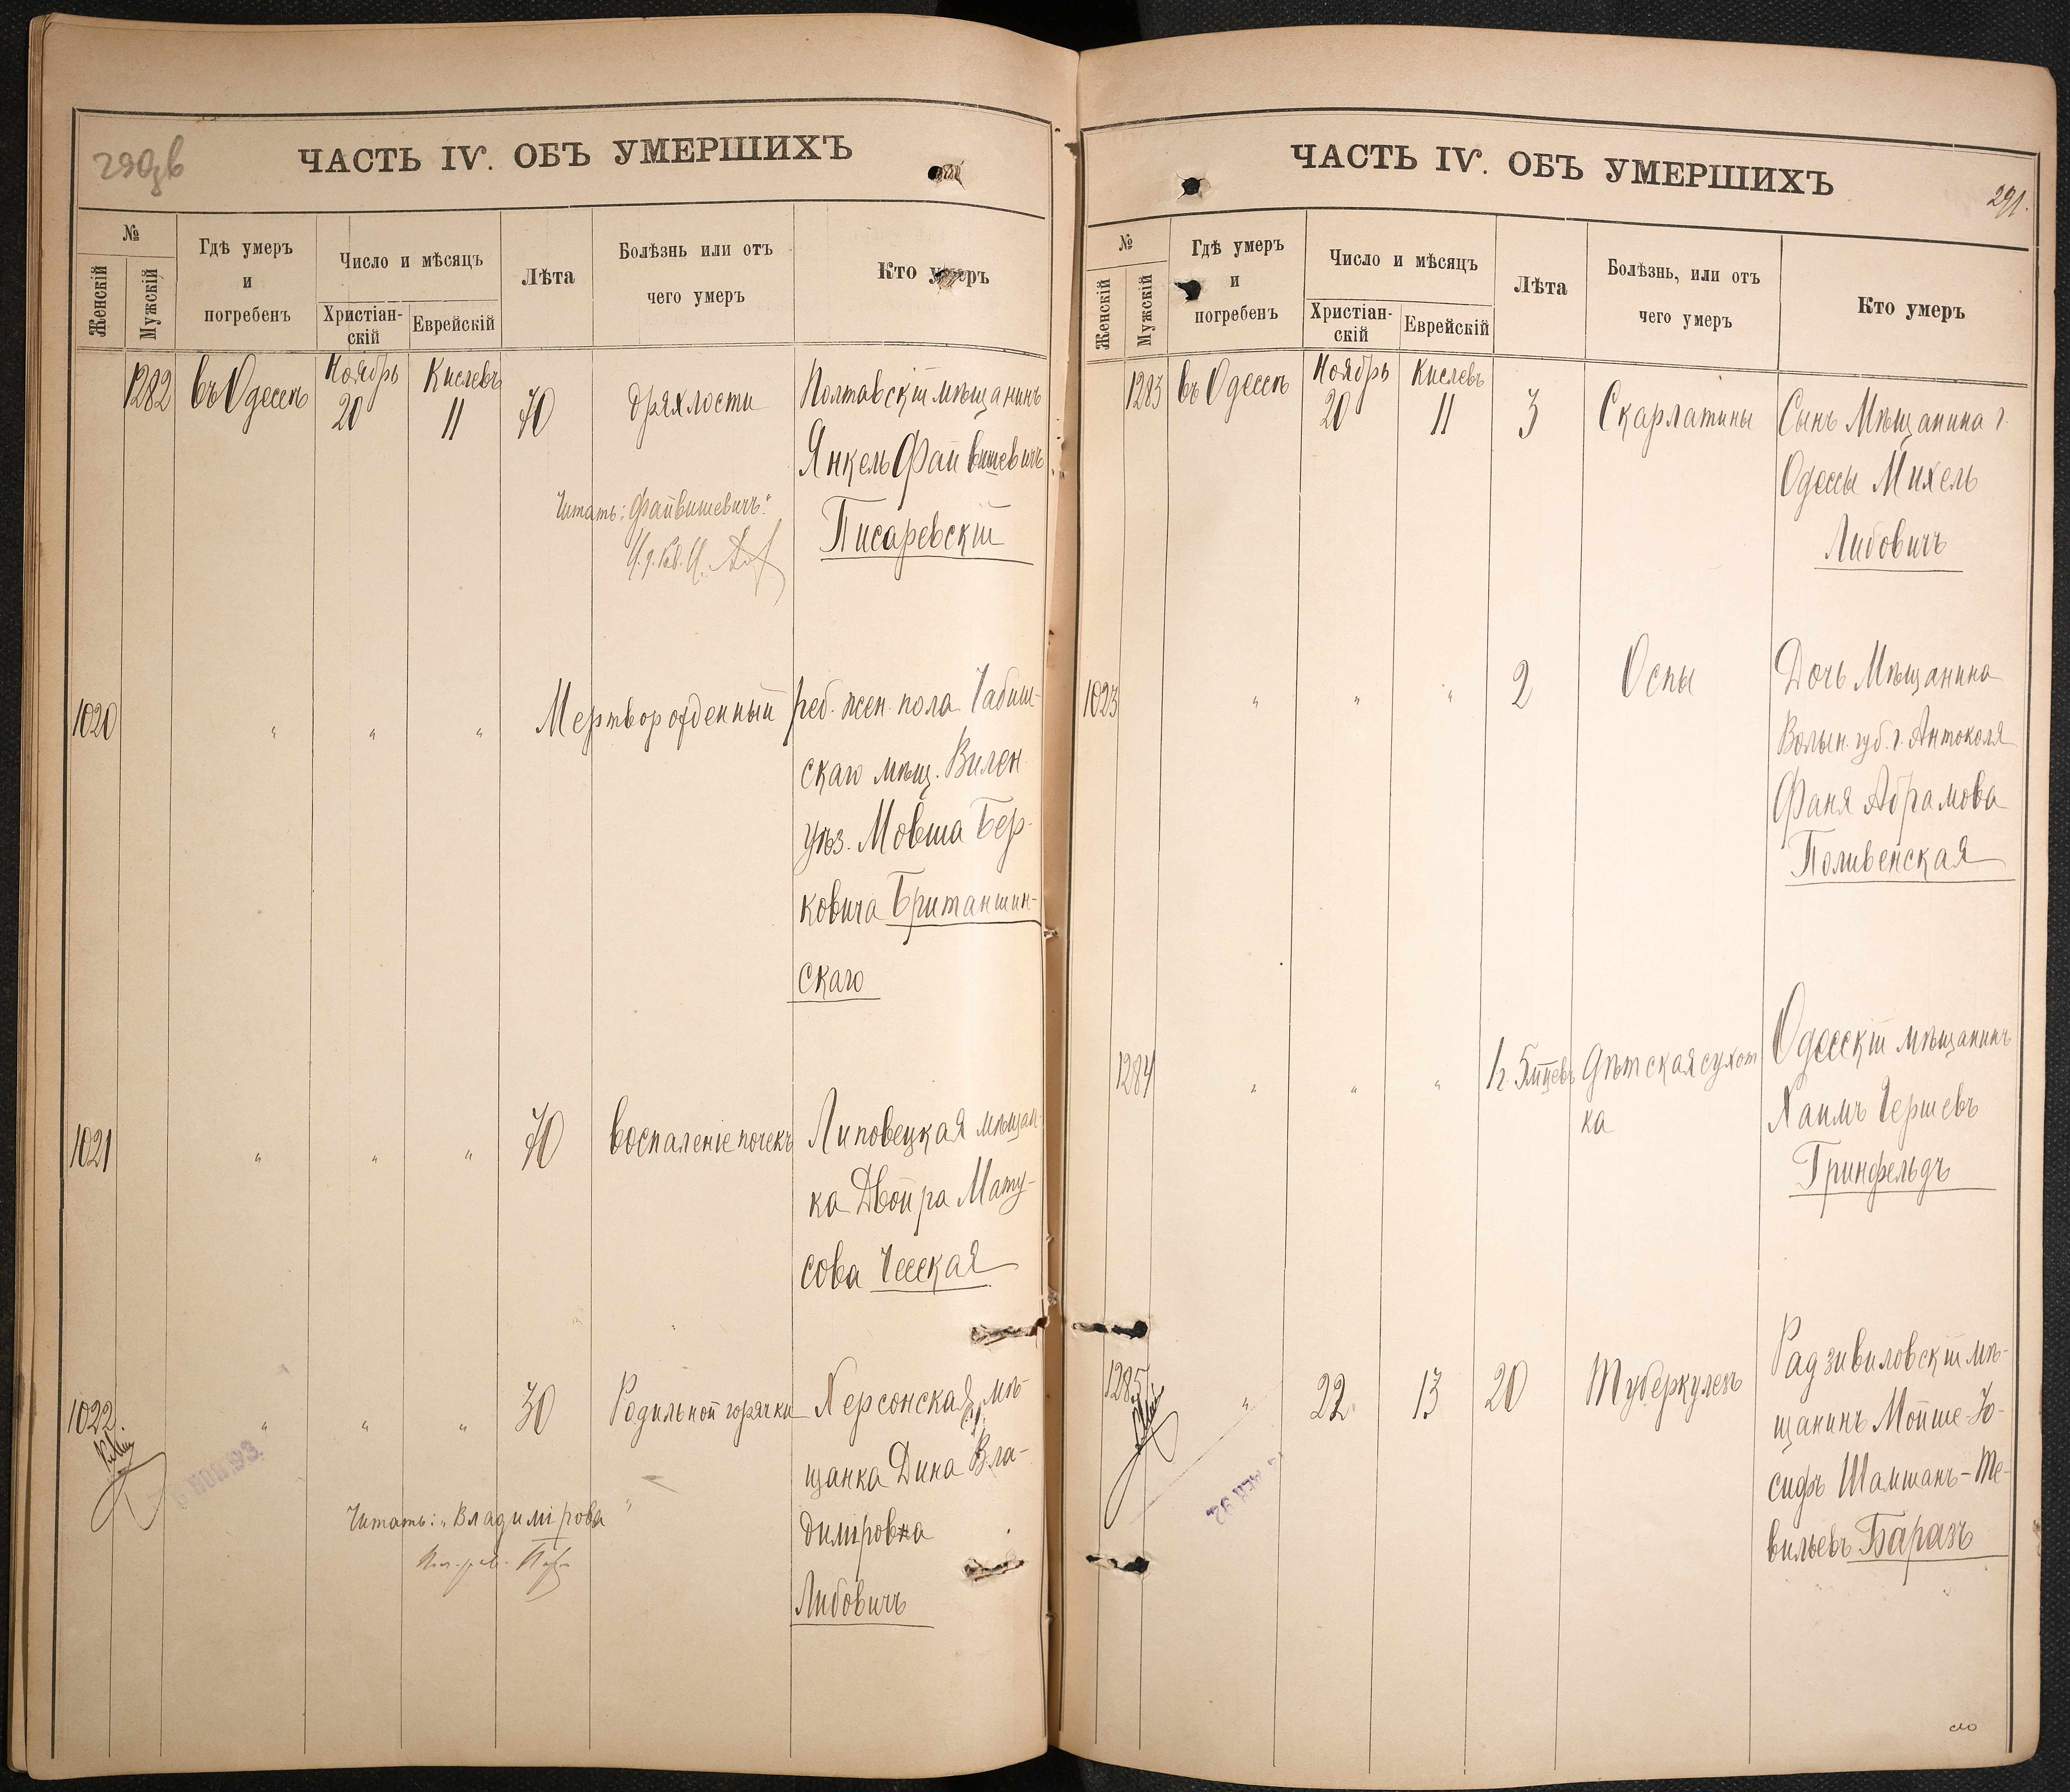 290б
ЧАСТЬ IV. ОБЪ УМЕРШИХЪ
№
Женскій
Мужскій
Гдѣ умеръ
и
погребенъ
Число и мѣсяцъ
Христіан-
скій
Еврейскій
Лѣта
Болѣзнь или отъ
чего умеръ
Кто умеръ
1282 въ Одессѣ Ноябрь 20 Кислевъ 11 70 дряхлости Полтавскій мѣщанинъ
Янкель Файвишевичъ
Читать: „Файвишевичъ."
Писаревскій
1020 " " " Мертворожденный реб. жен. пола Чабиш-
скаго мѣщ. Вилен.
уѣз. Мовша Бер-
ковича Британшин-
скаго
1021 " " " 70 воспаленіе почекъ Липовецкая мѣщан-
ка Двойра Мату-
сова Чесская
1022. " " " 30 Родильной горячки Херсонская мѣ-
щанка Дина Вла-
диміровна
Читать: „Владимірова"
Либовичъ
ЧАСТЬ IV. ОБЪ УМЕРШИХЪ
291.
№
Женскій
Мужскій
Гдѣ умеръ
и
погребенъ
Число и мѣсяцъ
Христіан-
скій
Еврейскій
Лѣта
Болѣзнь, или отъ
чего умеръ
Кто умеръ
1283 въ Одессѣ Ноябрь 20 Кислевъ 11 3 Скарлатины Сынъ Мѣщанина г.
Одессы Михель
Либовичъ
1023 " " " 2 Оспы Дочь Мѣщанина
Волын. губ. г. Антоколя
Фаня Абрамова
Поливенская
1284 " " " 1 г. 5 мѣцевъ Дѣтская сухот
ка
Одесскій мѣщанинъ
Хаимъ Гершевъ
Гринфельдъ
1285 " 22 13 20 Туберкулезъ Радзивиловскій мѣ-
щанинъ Мойше-Іо-
сифъ Шамшанъ-Те-
вильевъ Баразъ